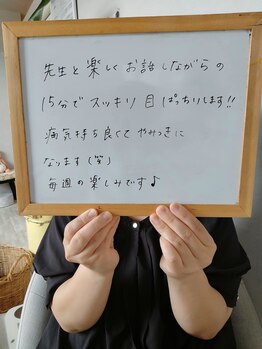 先生と楽しくお話しながらの
15分でスッキリ目ぱっちりします!!
病気持ち良くてやみつきに
なります(笑)
毎週の楽しみです♪